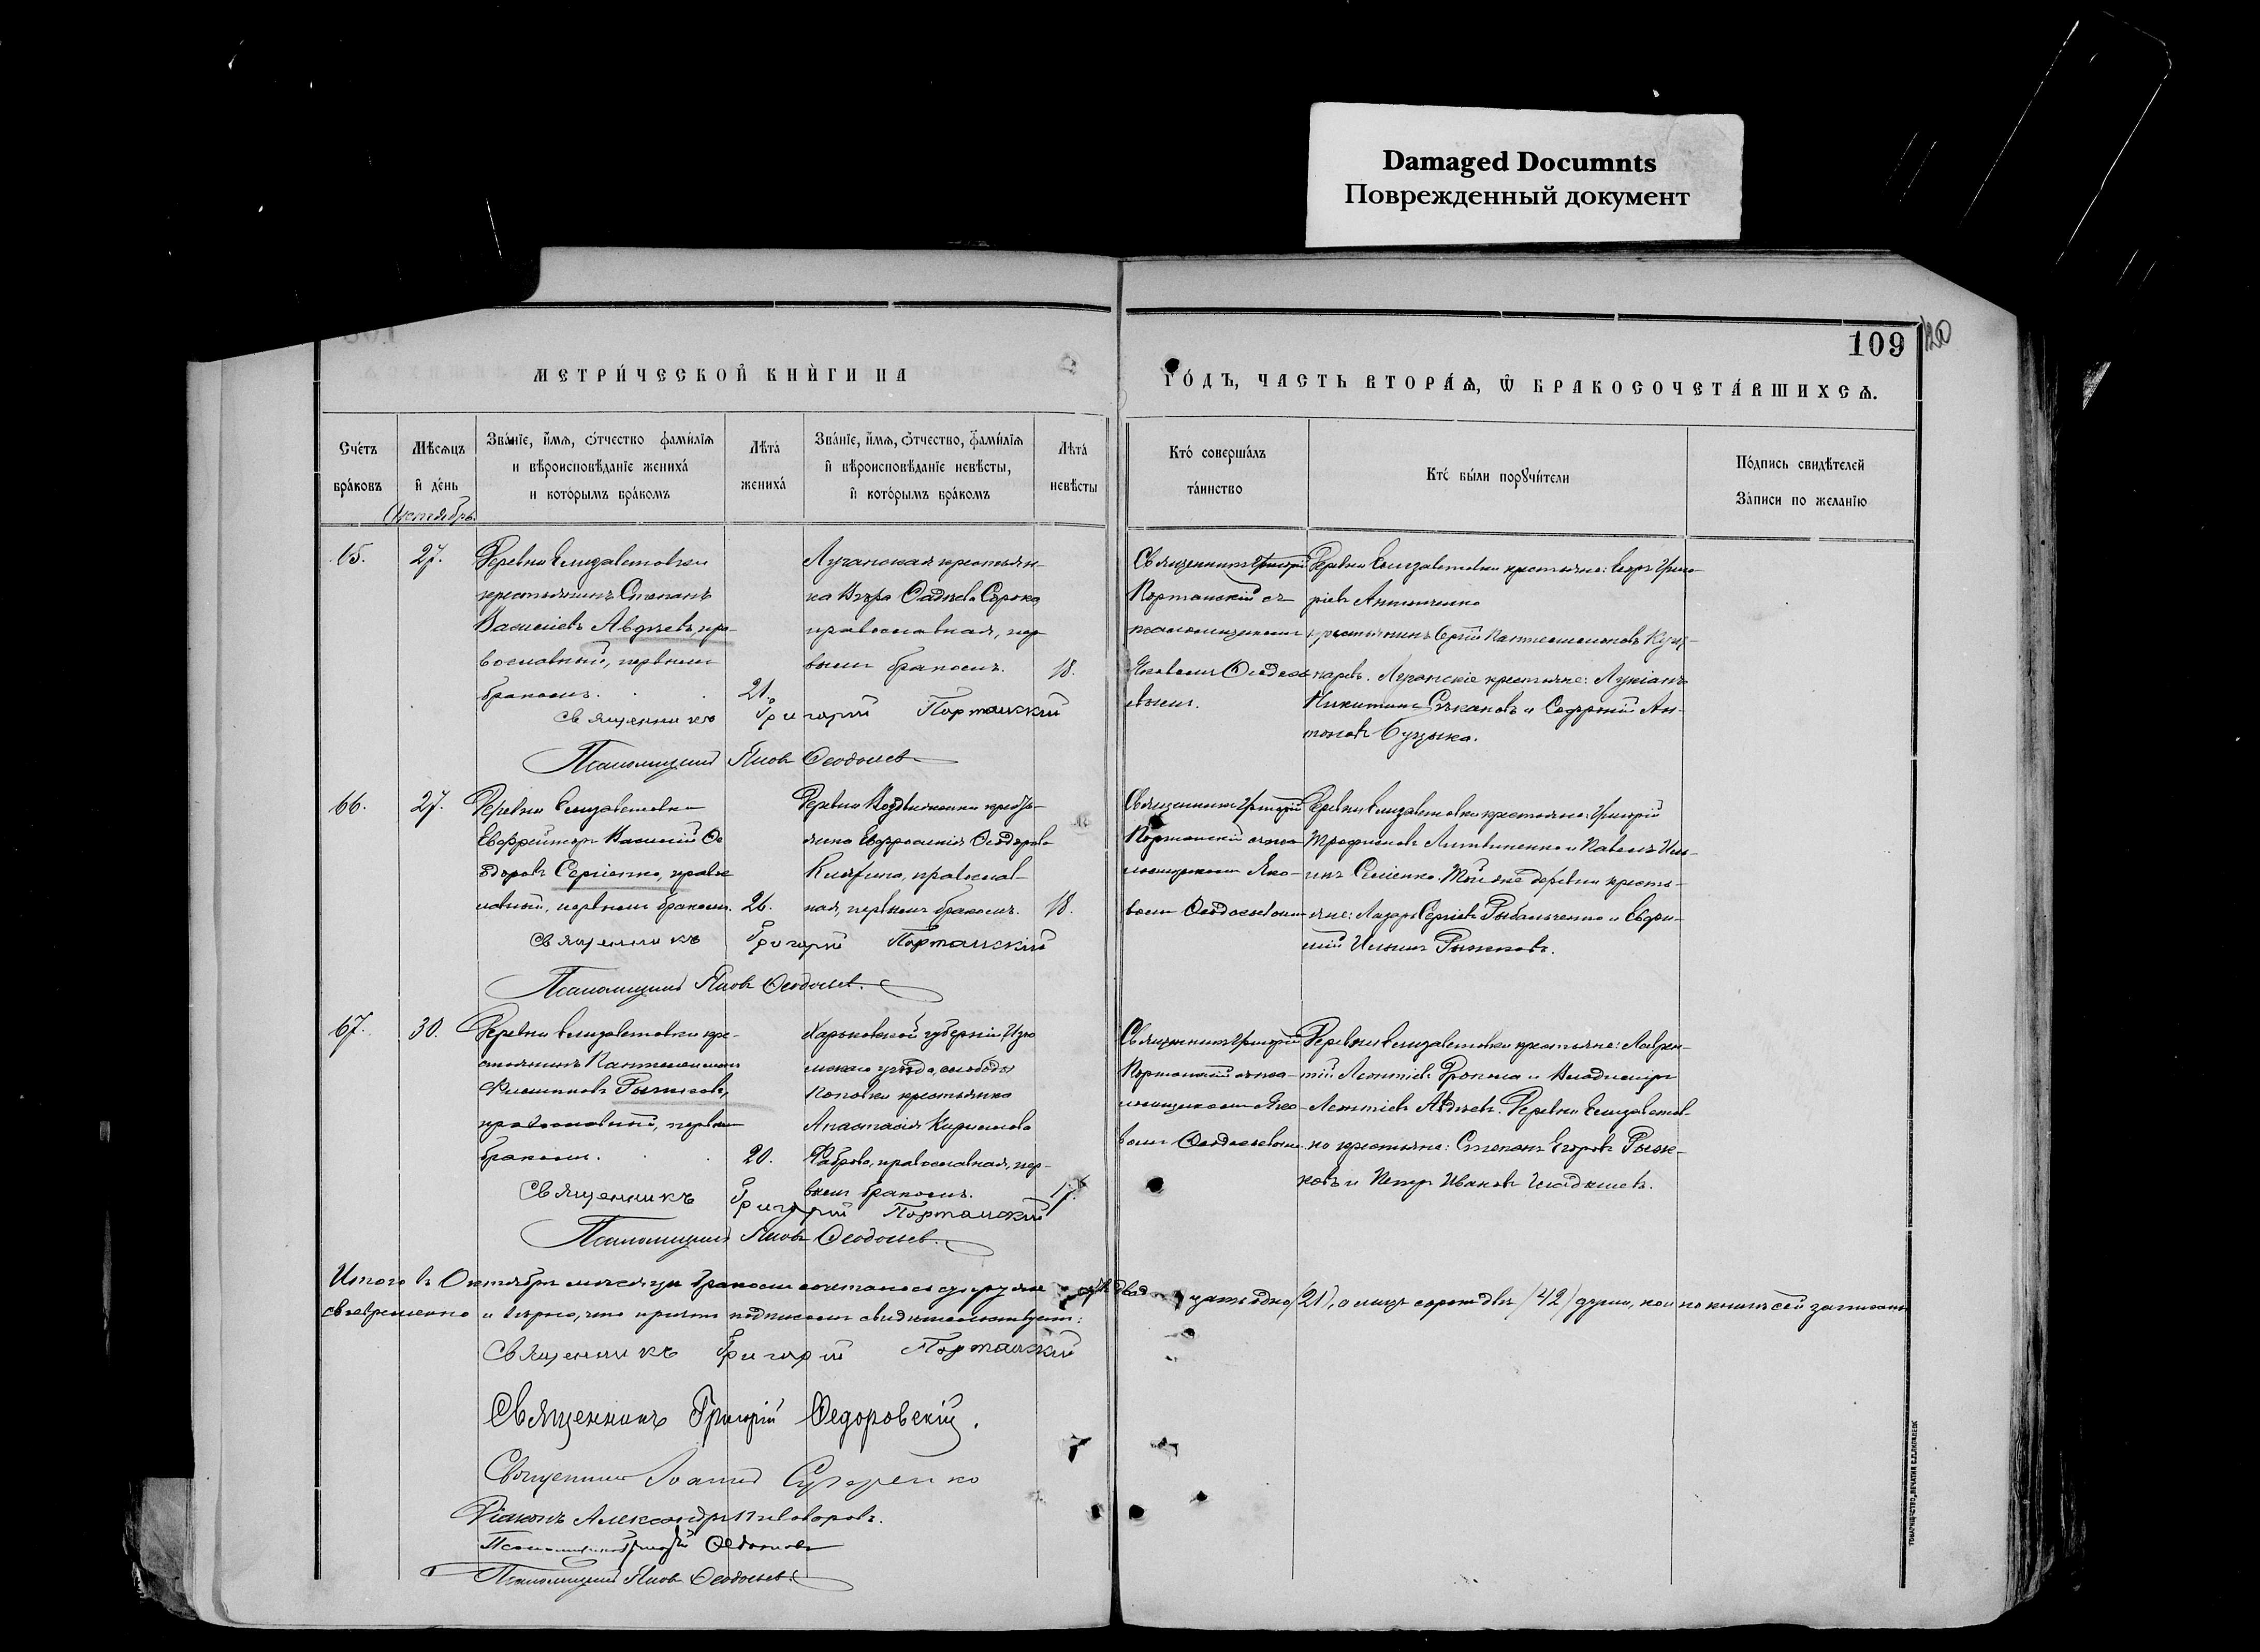 Damaged Documnts
Поврежденный документ
109
120
МЕТРИ́ЧЕСКОЙ КНИ́ГИ НА
ГО́ДЪ, ЧАСТЬ ВТОРА́Ѧ, Ѿ БРАКОСОЧЕТА́ВШИХСѦ.
Сче́тъ бра́ковъ
Мѣ́сѧцъ и҆ де́нь
Октябрь.
Зва́нїе, и҆́мѧ, ѻ҆́тчество фами́лїѧ
и вѣроисповѣ́данїе жениха́
и кото́рымъ бра́комъ
Лѣта̀
жениха́
Зва́нїе, и҆́мѧ, ѻ҆́тчество, фами́лїѧ
и҆ вѣроисповѣ́данїе невѣ́сты,
и҆ кото́рымъ бра́комъ
Лѣта̀
невѣ́сты
Кто́ соверша́лъ
та́инство
Кто́ бы́ли порꙋчи́тели
По́дпись свидѣ́телей
За́писи по жела́нїю
65.
27.
Деревни Елизаветовки
крестьянинъ Степанъ
Васильевъ Авдѣевъ, пра-
вославный, первымъ
бракомъ.
21.
Луганская крестьян-
ка Вѣра Сорока
православная, пер
вымъ бракомъ.
18.
Священникъ Григорій
Порташскій съ
псаломщикомъ
Яковомъ Ѳеодось
евымъ.
Деревни Елизаветовки крестьяне: Григо-
ріевъ
крестьянинъ Сергій Пантелеимоновъ
Луганскіе крестьяне: Лукіанъ
Никитинъ и Ан-
тоновъ Бузыка.
Священникъ Григорій Порташскій
Псаломщикъ Яковъ Ѳеодосьев
66.
27.
Деревни Елизаветовки
Ефрейторъ Василій Ѳе
одоровъ Сергіенко, правос
лавный, первымъ бракомъ.
26.
Деревни Воздвиженки кресть-
янка Евфросинія Ѳеодорова
православ-
ная, первымъ бракомъ.
18.
Священникъ Григорій
Порташскій съ пса-
ломщикомъ Яко-
вомъ Ѳеодосьевымъ
Деревни Елизаветовки крестьяне: Григорій
Трофимовъ Литвиненко и Павелъ Иль-
инъ Той же деревни кресть-
яне: Лазарь Сергіевъ Рыбальченко и Евфи-
мій Ильинъ Рыжковъ.
Священникъ Григорій Порташскій
Псаломщикъ Яковъ Ѳеодосьев.
67.
30.
Деревни Елизаветовки кре-
стьянинъ Пантелеимонъ
Филипповъ Рыжковъ,
православный, первым
бракомъ.
20.
Харьковской губерніи Изю
мскаго уѣзда, слободы
Поповки крестьянка
Анастасія Кириллова
православная, пер-
вымъ бракомъ.
17.
Священникъ Григорій
Порташскій съ пса-
ломщикомъ Яко-
вомъ Ѳеодосьевымъ
Деревни Елизаветовки крестьяне: Лаврен-
тій Леонтіевъ и Владимиръ
Леонтіевъ Авдѣевъ. Деревни Елизаветов-
ки крестьяне: Степанъ Егоровъ Рыж-
ковъ и Петръ Ивановъ Гладышевъ.
Священникъ Григорій Порташскій
Псаломщикъ Яковъ Ѳеодосьев.
Итого въ Октябрѣ мѣсяцѣ бракомъ сочеталось двадцать одно (21), а лицъ сорокъ двѣ (42) души, кои по книгѣ сей записаны
своевременно и вѣрно, что причтъ подписомъ свидѣтельствуетъ:
Священникъ Григорій Порташскій
Священникъ Григорій Ѳедоровскій.
Священникъ Іоаннъ
Діаконъ Александръ Пивоваровъ.
Псаломщикъ Григорій
Псаломщикъ Яковъ Ѳеодосьев.